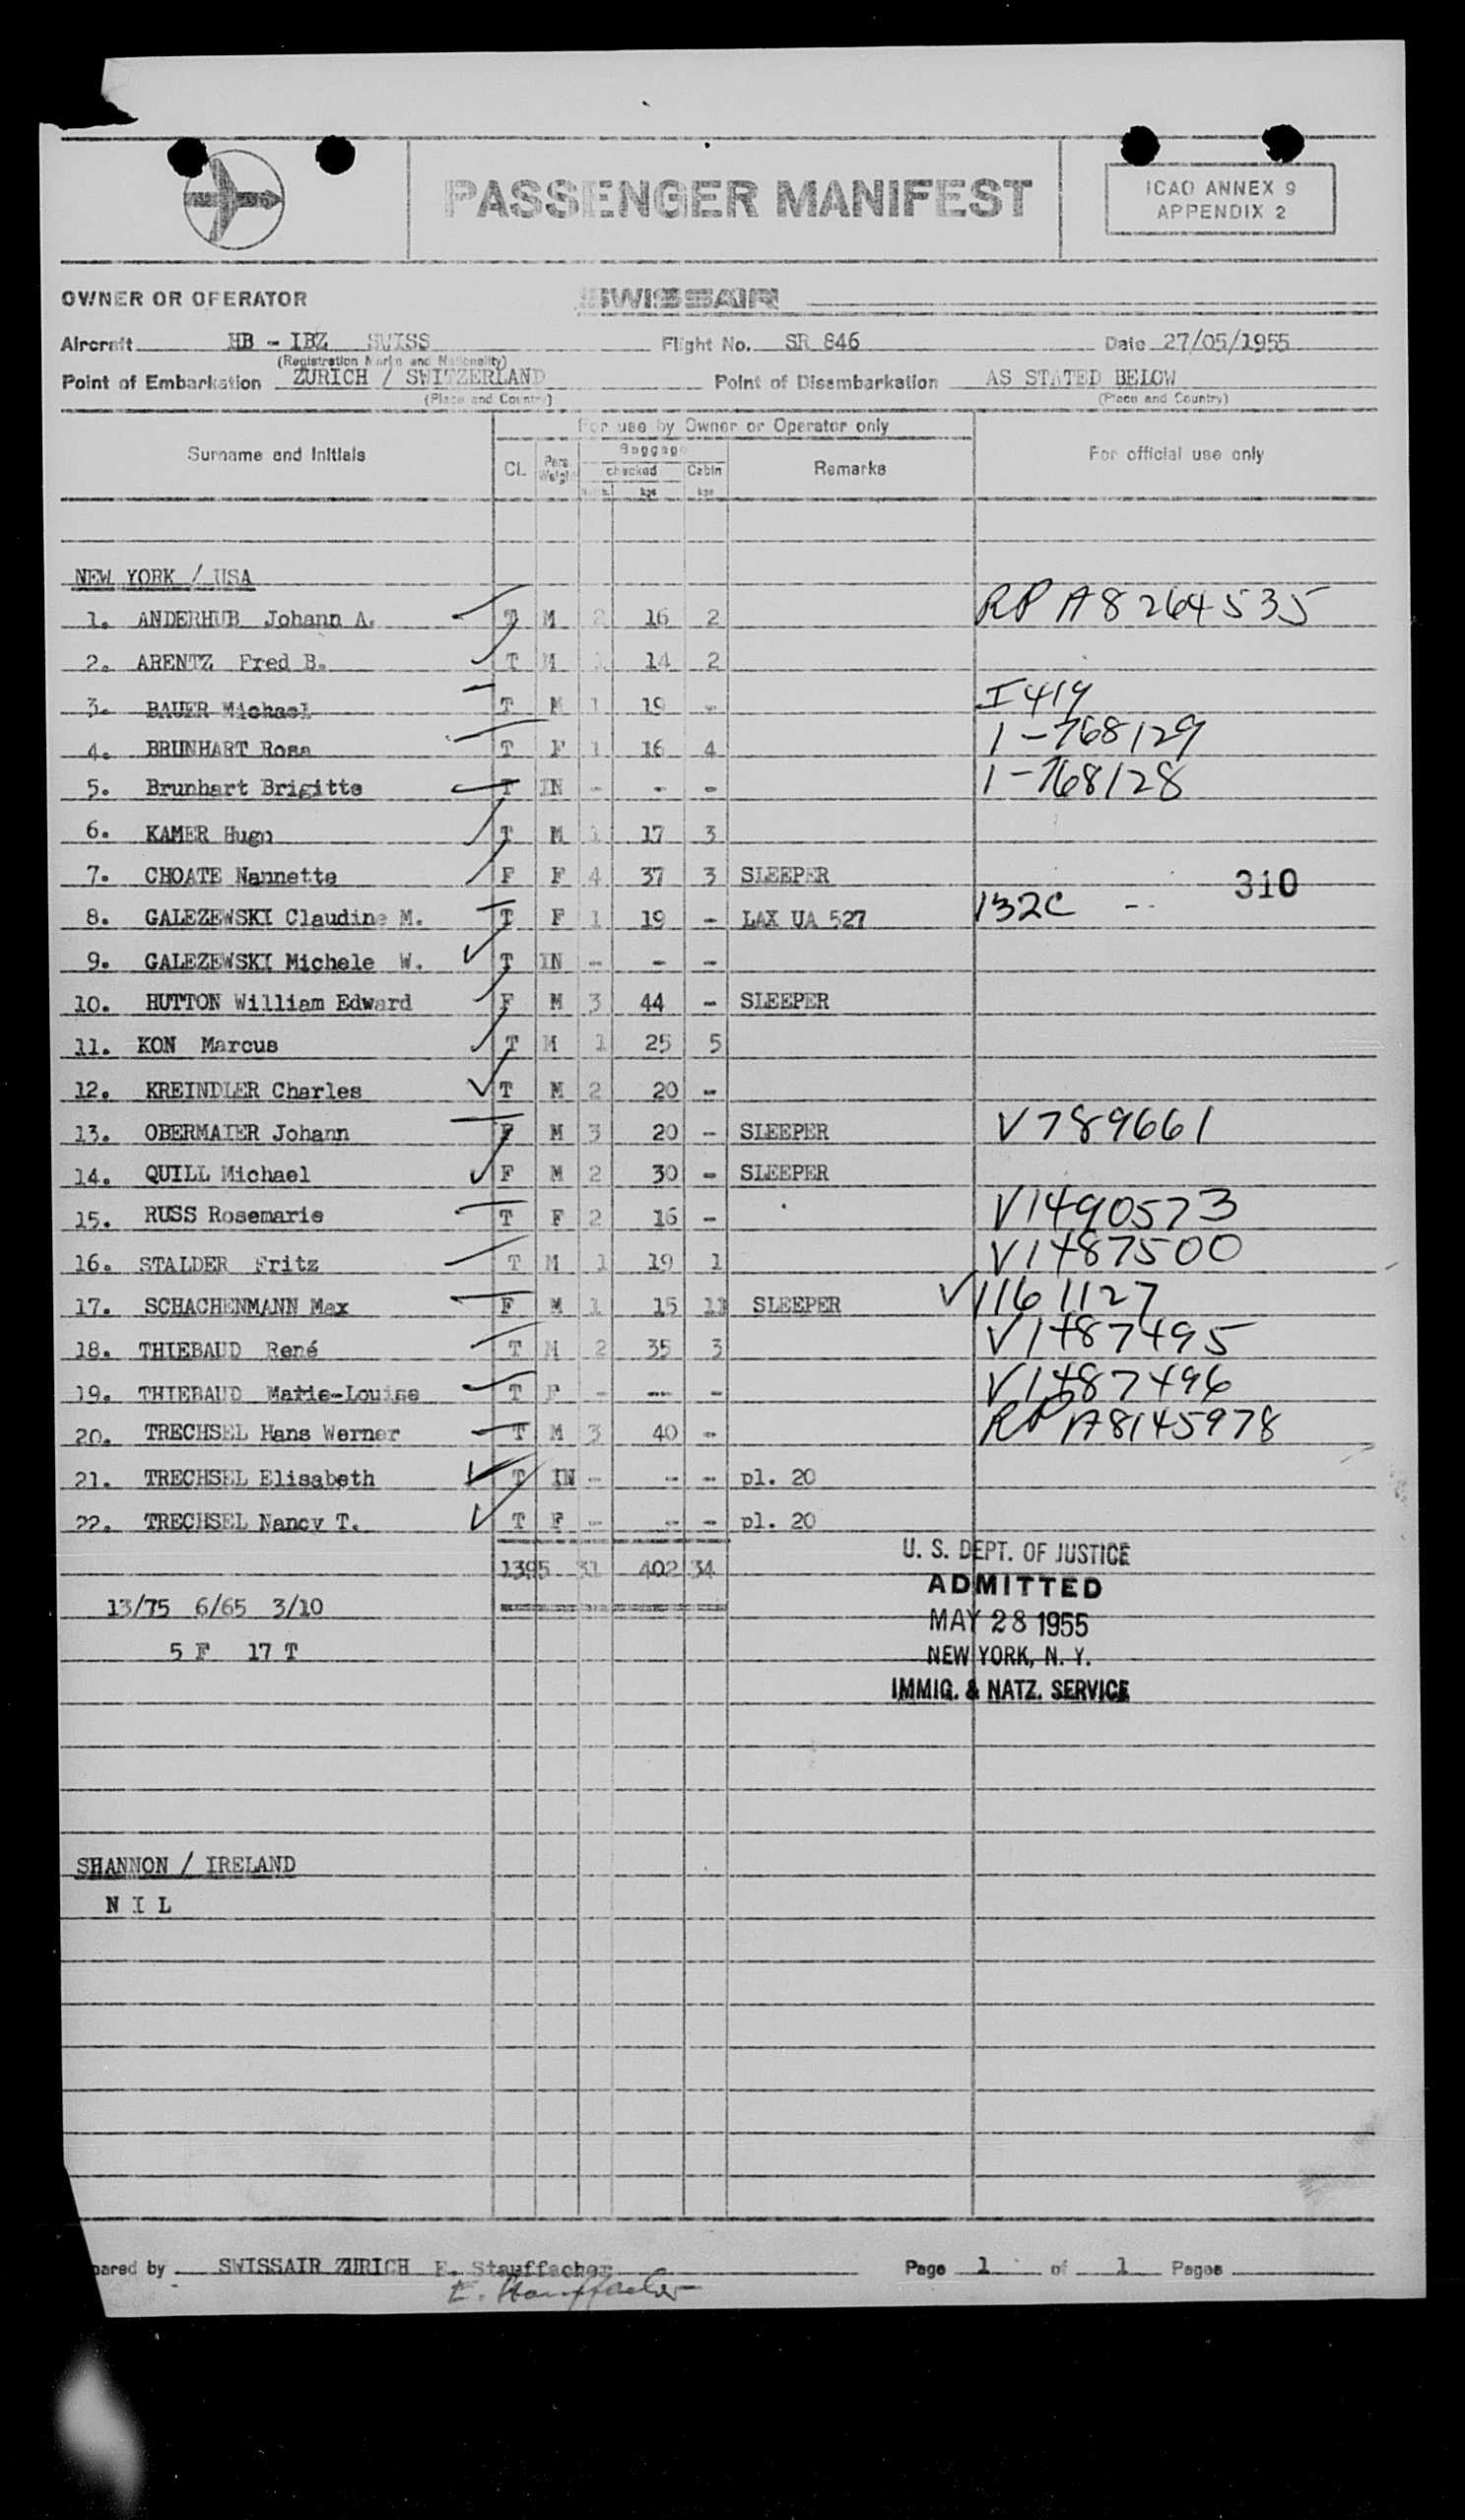 PASSENGER MANIFEST
ICAO ANNEX 9
APPENDIX 2
OWNER OR OPERATOR SWISSAIR
Aircraft HB - IBZ SWISS Flight No. SR 846 Date 27/05/1955
(Registration Marks and Nationality)
Point of Embarkation ZURICH / SWITZERLAND Point of Disembarkation AS STATED BELOW
(Place and Country) (Place and Country)
For use by Owner or Operator only
Surname and Initials CL. Pers. Weight Baggage checked kgs Cabin kgs Remarks For official use only
NEW YORK / USA
1. ANDERHUB Johann A. T M 2 16 2 RP A8264535
2. ARENTZ Fred B. T M 14 2
3. BAUER Michael T M 1 19 - I419
4. BRUNHART Rosa T F 1 16 4 1-768129
5. Brunhart Brigitte T IN - - - 1-768128
6. KAMER Hugo T M 1 17 3
7. CHOATE Nannette F F 4 37 3 SLEEPER 310
8. GALEZEWSKI Claudine M. T F 1 19 - LAX UA 527 132C --
9. GALEZEWSKI Michele W. T IN - - -
10. HUTTON William Edward F M 3 44 - SLEEPER
11. KON Marcus T M 1 25 5
12. KREINDLER Charles T M 2 20 -
13. OBERMAIER Johann F M 3 20 - SLEEPER V789661
14. QUILL Michael F M 2 30 - SLEEPER
15. RUSS Rosemarie T F 2 16 - V1490573
16. STALDER Fritz T M 1 19 1 V1487500
17. SCHACHENMANN Max F M 1 15 11 SLEEPER V1161127
18. THIEBAUD René T M 2 35 3 V1487495
19. THIEBAUD Marie-Louise T F - -- - V1487496
20. TRECHSEL Hans Werner T M 3 40 - RP A8145978
21. TRECHSEL Elisabeth T IN - -- - pl. 20
22. TRECHSEL Nancy T. T F - -- - pl. 20
1395 31 402 34
13/75 6/65 3/10
5 F 17 T
U. S. DEPT. OF JUSTICE
ADMITTED
MAY 28 1955
NEW YORK, N. Y.
IMMIG. & NATZ. SERVICE
SHANNON / IRELAND
N I L
pared by SWISSAIR ZURICH E. Stauffacher Page 1 of 1 Pages
E. Stauffacher